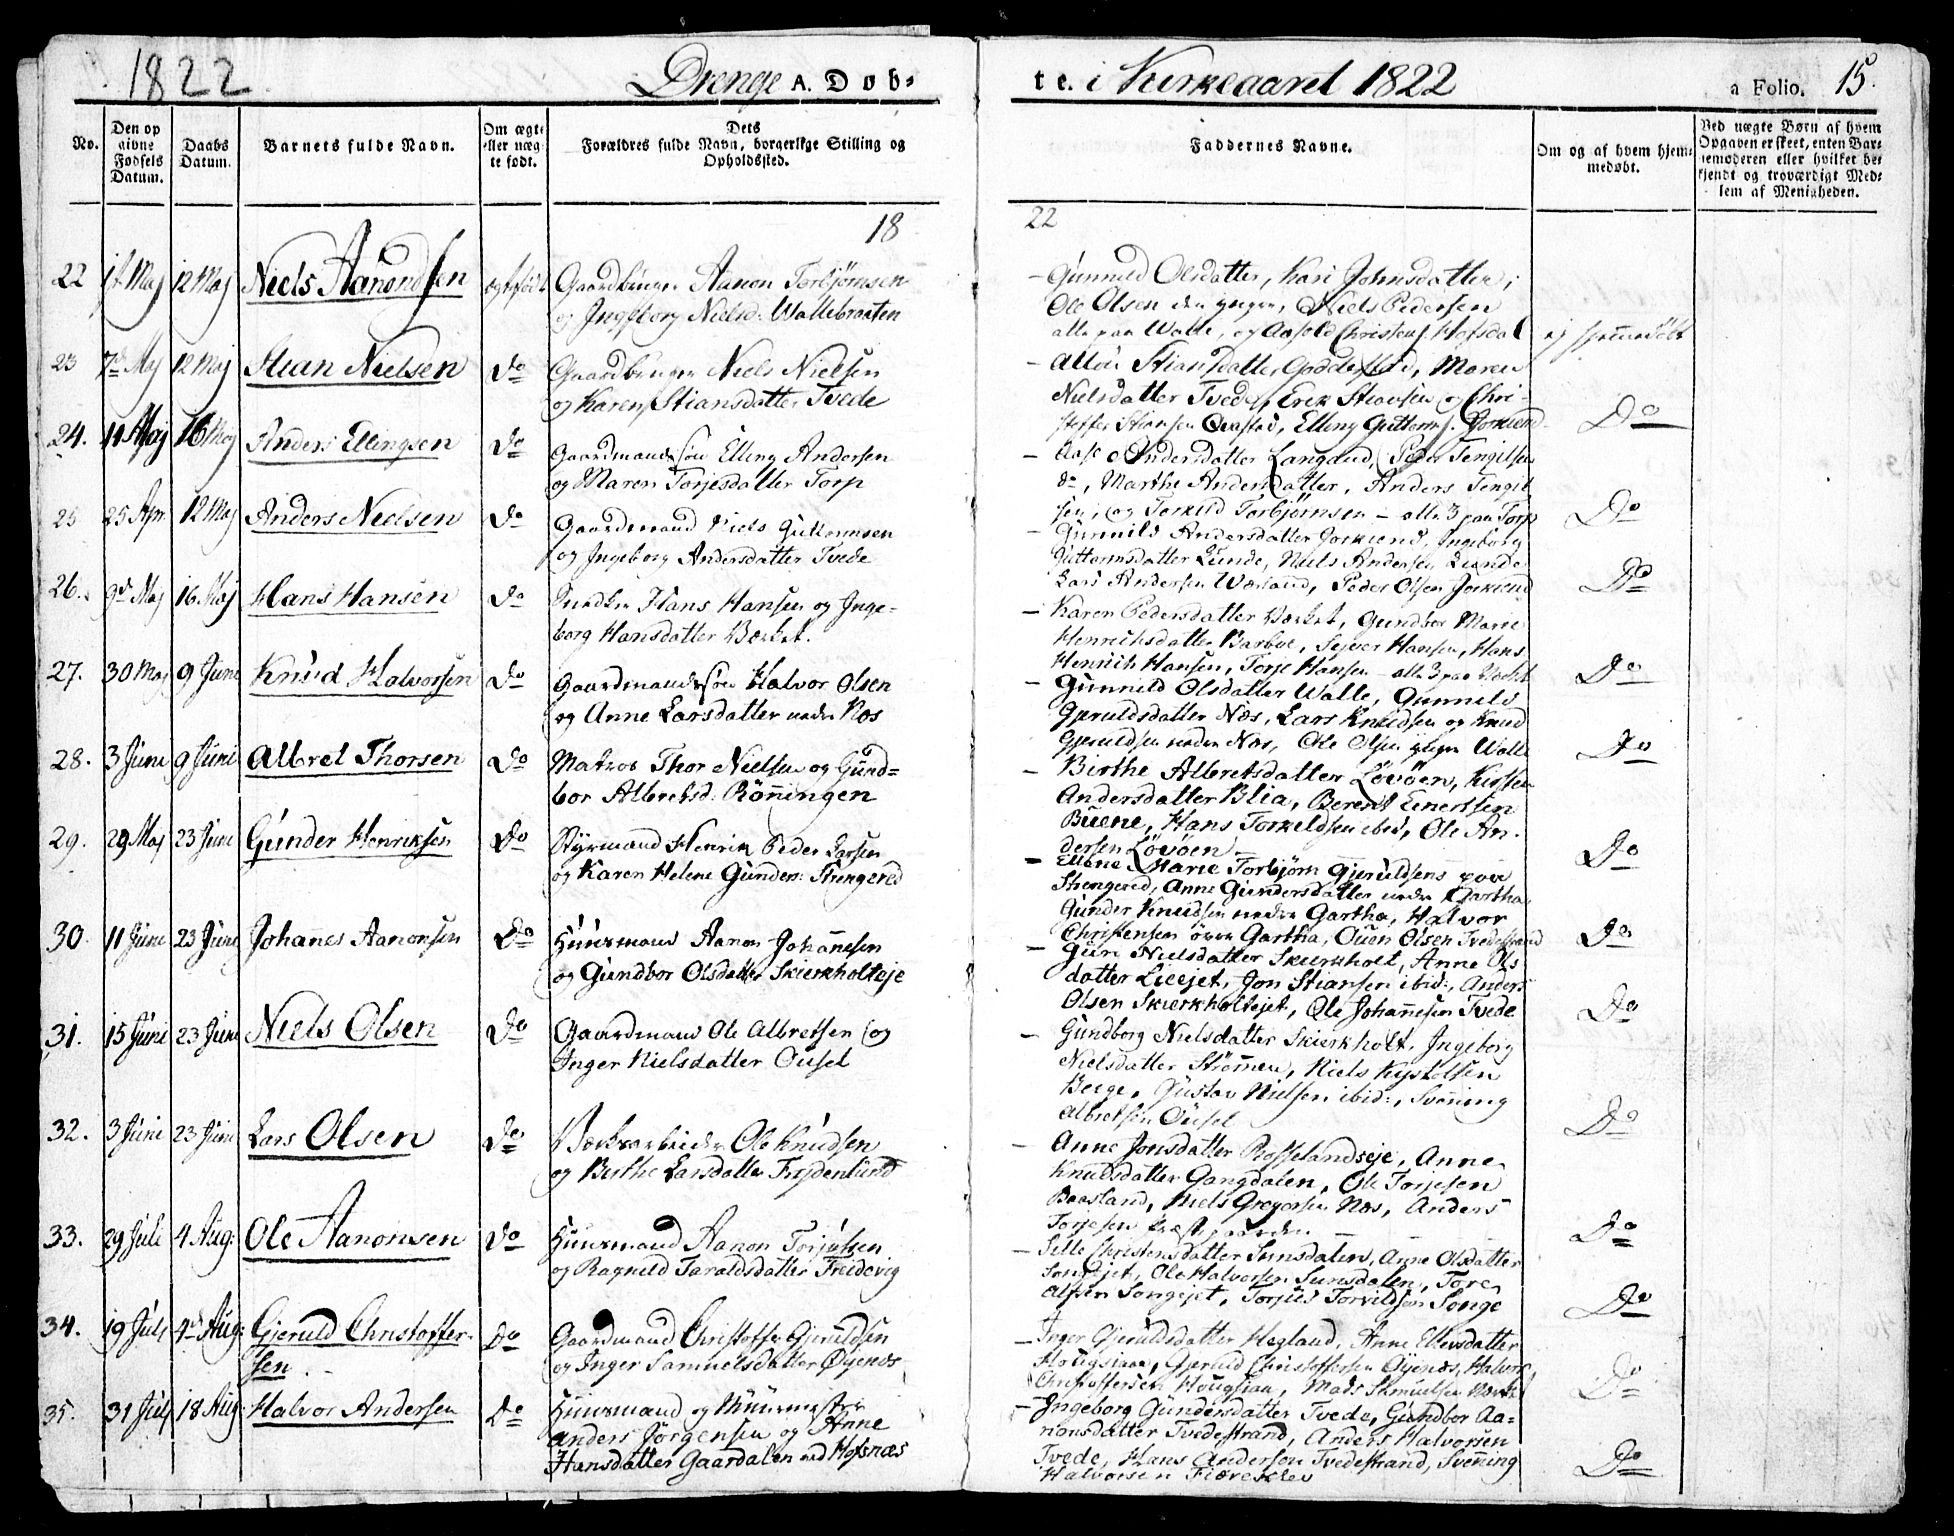 1822
Drenge A. Døb-
te. i Kirkeaaret 1822
a Folio. 15.
No.
Den op
givne
Fødsels
Datum.
Daabs
Datum.
Barnets fulde Navn.
Om ægte
eller uæg
te født.
Dets
Forældres fulde Navn, borgerlige Stilling og
Opholdssted.
Faddernes Navne.
Om og af hvem hjem-
medøbt.
Ved uægte Børn af hvem
Opgaven er skeet, enten Bar-
nemoderen eller hvilket be-
kjendt og troværdigt Med-
lem af Menigheden.
18
22
22 Maj 12 Maj Niels Aanondsen ægtefødt Gaardbruger Aanon Torbjørnsen
og Ingeborg Nielsd: Wallebraaten
– Gunneld Olsdatter, Kari Johnsdatter,
Ole Olsen den yngre, Niels Pedersen
alle paa Walle, og Aasold Christens. Hofsdal
ej hjemmedøbt
23 7de Maj 12 Maj Stian Nielsen Do Gaardbruger Niels Nielsen
og Karen Stiansdatter Tvede
– Stiansdatter Goddersted, Maren
Nielsdatter Tvede, Erek Stiansen og Chri-
stoffer Stiansen Elling Guttorms.
Do
24. 11 Maj 16 Maj Anders Ellingsen Do Gaardmandssøn Elling Andersen
og Maren Torjesdatter Torp
– Aase Andersdatter Langaud, Peder Tengelsen
do, Marthe Andersdatter, Anders Tengel
sen, og Terkild Torbjørnsen – alle 3 paa Torp
Do
25 25 Apr. 12 Maj Anders Nielsen Do Gaardmand Niels Guttormsen
og Ingeborg Andersdatter Tvede
– Gunnild Andersdatter Ingeborg
Guttormsdatter Lunde, Niels Andersen Lunde
Lars Andersen Peder Olsen
Do
26. 9de Maj 16. Maj Hans Hansen Do Hans Hansen og Inge-
borg Hansdatter Værket.
– Karen Pedersdatter Værket, Gundbor Marie
Henrichsdatter Barboe, Sejver Hansen, Hans
Henrich Hansen, Torje Hansen – alle 3 paa
Do
27. 30 Maj 9 Juni Knud Halvorsen Do Gaardmandssøn Halvor Olsen
og Anne Larsdatter nedre Næs
– Gunnild Olsdatter Walle, Gunneld
Gjeruldsdatter Næs, Lars Knudsen og Knud
Gjeruldsen nedre Næs, Ole Olsen yngre Walle
Do
28. 3 Juni 9 Juni Albret Thorsen Do Matros Thor Nielsen og Gund-
bor Albretsd: Rönningen
– Birthe Albretsdatter Lövöen, Kirsten
Andersdatter Blia, Berent Einertsen
Buene, Hans Torkeldsen ibid, Ole An-
dersen Lövöen –
Do
29. 29 Maj 23 Juni Gunder Henriksen Do Styrmand Henrik Peder Larsen
og Karen Helene Gunders: Strengered
– Ellene Marie Torbjørn Gjeruldsens
Strengered, Anne Gundersdatter nedre Gartha
Gunder Knudsen nedre Gartha, Halvor
Christensen övre Gartha, Ouen Olsen Tvedestrand
Do
30. 11 Juni 23 Juni Johannes Aanonsen Do Huusmand Aanon Johannesen
og Gundbor Olsdatter Skierkholteje
– Guri Nielsdatter Skierkholt, Anne Ols-
datter Jon Stiansen ibid:, Anders
Olsen Skierkholtejet, Ole Johannesen Tvede
Do
31. 15 Juni 23 Juni Niels Olsen Do Gaardmand Ole Albretsen og
Inger Nielsdatter Ousel
– Gundborg Nielsdatter Skierkholt, Ingeborg
Nielsdatter Strömmen, Niels
Berge, Gustav Nielsen ibid:, Svenning
Albretsen Ousel
Do
32. 3 Juni 23 Juni Lars Olsen Do Ole Knudsen
og Birthe Larsdatter Frydenlund
– Anne Jonsdatter Rosselandseje, Anne
Knudsdatter Gangdalen, Ole Torjesen
Baasland, Niels Gregersen Næs, Anders
Torjesen
Do
33. 29 Juli 4 Aug: Ole Aanonsen Do Huusmand Aanon
og Ragneld Taraldsdatter
– Sille Christensdatter Sunsdalen, Anne Olsdatter
Songejet, Ole Halvorsen Sunsdalen, Tore
Olsen Songejet, Torjus Torvildsen Songe
Do
34. 19 Juli 4de Aug: Gjeruld Christoffer-
sen Do Gaardmand Christoffer Gjeruldsen
og Inger Samuelsdatter Øyenæs
– Inger Gjeruldsdatter Hegland, Anne Ellevsdatter
Hougsiaae, Gjeruld Christoffersen Øyenæs, Halvor
Christoffersen Hougsiaa, Mads Samuelsen
Do
35. 31 Juli 18 Aug: Halvor Andersen Do Huusmand og Muurmester
Anders Jörgensen og Anne
Hansdatter Gaardalen ved Hofsnæs
– Ingeborg Gundersdatter Tvede, Gundbor Aa-
nonsdatter Tvedestrand, Anders Halvorsen
Tvede, Hans Anderson Tvedestrand, Svenning
Halvorsen Fiereklev
Do